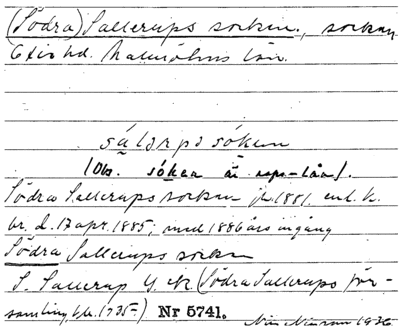 (Södra) Sallerups socken., socken
Oxie hd. Malmöhus län.
sálarps sóken
(Obs. sóken är rspr-lån).
Södra Sallerups socken jb. 1881. enl. k.
br. d. 17 apr. 1885; med 1886 års ingång
Södra Sallerups socken
S. Sallerup (Södra Sallerups för-
samling, 1735-) Nr 5741.
1936